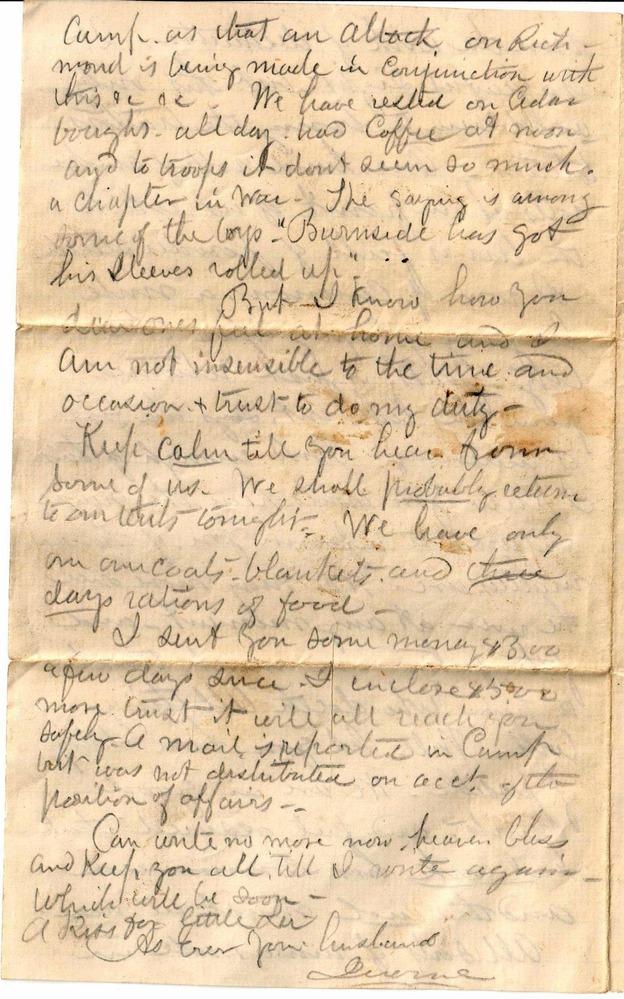 Camp. as that an attack on Rich-
mond is being made in conjunction with
this &c &c - We have rested on Cedar
boughs - all day - had Coffee at noon
and to troops it dont seem so much
a chapter in War - The saying is among
some of the boys - "Burnside has got
his sleeves rolled up" - ...
But I know how you
dear ones feel at home and I
am not insensible to the time and
occasion & trust to do my duty -
Keep calm till you hear from
some of us. We shall probably return
to our tents tonight. We have only
our overcoats - blankets and three
days rations of food -
I sent you some money $3.00
a few days since - I inclose $5.00
more trust it will all reach you
safely - A mail is reported in Camp
but was not distributed on acct. of the
position of affairs -
Can write no more now, heaven bless
and Keep you all, till I write again -
which will be soon -
A Kiss for little
As Ever Your husband